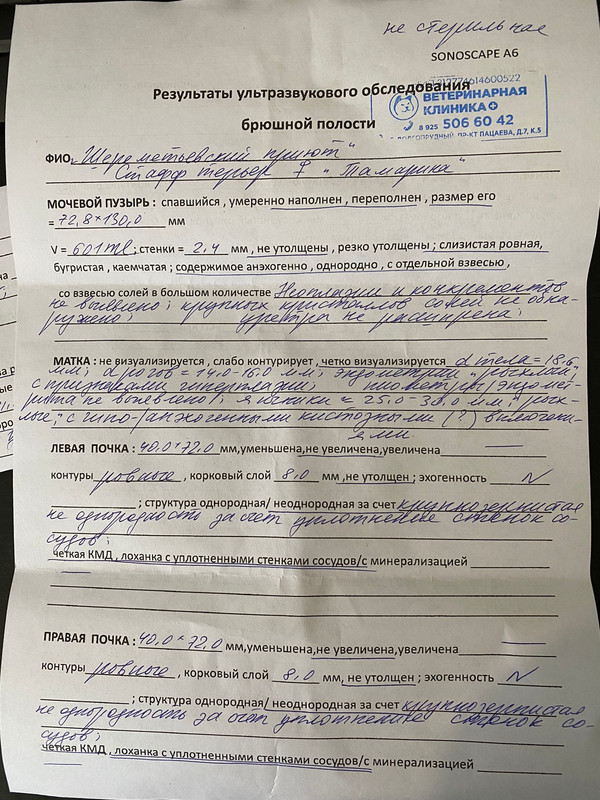 не стерильная
SONOSCAPE A6
Результаты ультразвукового обследования
брюшной полости
ВЕТЕРИНАРНАЯ
КЛИНИКА
8 925 506 60 42
ДОЛГОПРУДНЫЙ, ПР-КТ ПАЦАЕВА, Д.7, К.5
ФИО „Шереметьевский приют“
Стафф терьер ♀ „Тамарика“
МОЧЕВОЙ ПУЗЫРЬ : спавшийся , умеренно наполнен , переполнен , размер его
= 72,8*130,0 мм
V = 601 ml ; стенки = 2,4 мм , не утолщены , резко утолщены ; слизистая ровная,
бугристая , каемчатая ; содержимое анэхогенно , однородно , с отдельной взвесью ,
со взвесью солей в большом количестве Неоплазии и конкрементов
не выявлено; крупных кристаллов солей не обна-
ружено; уретра не расширена;
МАТКА : не визуализируется , слабо контурирует , четко визуализируется d тела = 18,6
мм; d рогов = 14,0-16,0 мм; эндометрий „рыхлый“
с признаками гиперплазии; пиометры/эндомет-
рита не выявлено; яичники = 25,0-38,0 мм, „рых-
лые“, с гипо-/анэхогенными кистозными (?) включени-
ями.
ЛЕВАЯ ПОЧКА : 40,0*72,0 мм,уменьшена,не увеличена,увеличена
контуры ровные , корковый слой 8,0 мм ,не утолщен ; эхогенность N
; структура однородная/ неоднородная за счет крупнозернистая
не однородность за счет уплотнение стенок со-
судов;
четкая КМД , лоханка с уплотненными стенками сосудов/с минерализацией
ПРАВАЯ ПОЧКА : 40,0*72,0 мм,уменьшена,не увеличена,увеличена
контуры ровные , корковый слой 8,0 мм, не утолщен ; эхогенность N
; структура однородная/ неоднородная за счет крупнозернистая
не однородность за счет уплотнение стенок со-
судов;
четкая КМД , лоханка с уплотненными стенками сосудов/с минерализацией